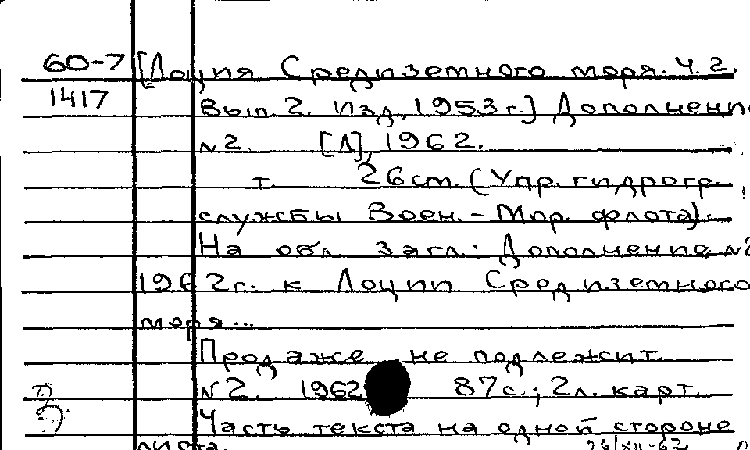 60-7 [Лоция Средиземного моря. Ч. 2.
1417 Вып. 2. Изд. 1953 г.] Дополнение
№2. [Л], 1962.
т. 26 см. (Упр. гидрогр.
службы Воен.-Мор. флота).
На обл. загл.: Дополнение №2
1962 г. к Лоции Средиземного
моря...
Продаже не подлежит.
№2. 1962 87 с.; 2 л. карт.
Часть текста на одной стороне
листа. 26/XII-62